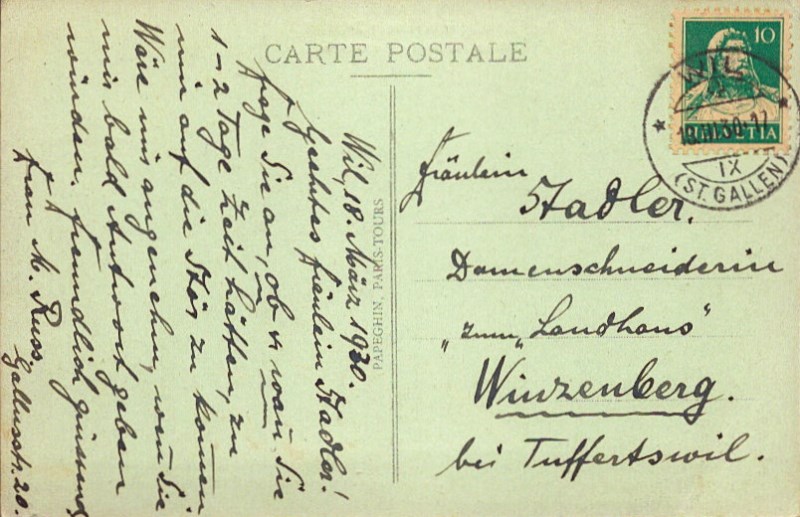 CARTE POSTALE
Wil, 18. März 1930.
Geehrtes Fräulein Stadler!
frage Sie an, ob & wan Sie
1-2 Tage Zeit hätten, zu
mir auf die Stör zu kommen
Wäre mir angenehm, wen Sie
mir bald Antwort geben
würden. freundlich grüssend
Frau M. Russ
Gallusstr. 20.
PAPEGHIN, PARIS-TOURS
10
HELVETIA
WIL
18.III.30-17
IX
(ST. GALLEN)
Fräulein
Stadler.
Damenschneiderin
"zum „Landhaus"
Winzenberg.
bei Tuffertswil.